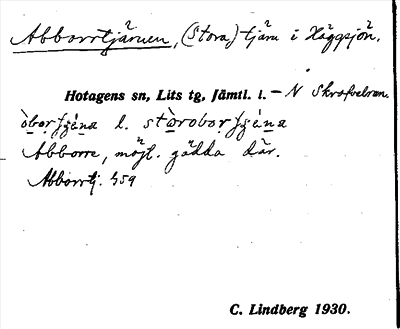 Abborrtjärnen, (Stora) tjärn i Häggsjön.
Hotagens sn, Lits tg, Jämtl. l. – N Skrofvelvan.
l.
Abborre, möjl. gädda där.
Abborrtj. 359
C. Lindberg 1930.